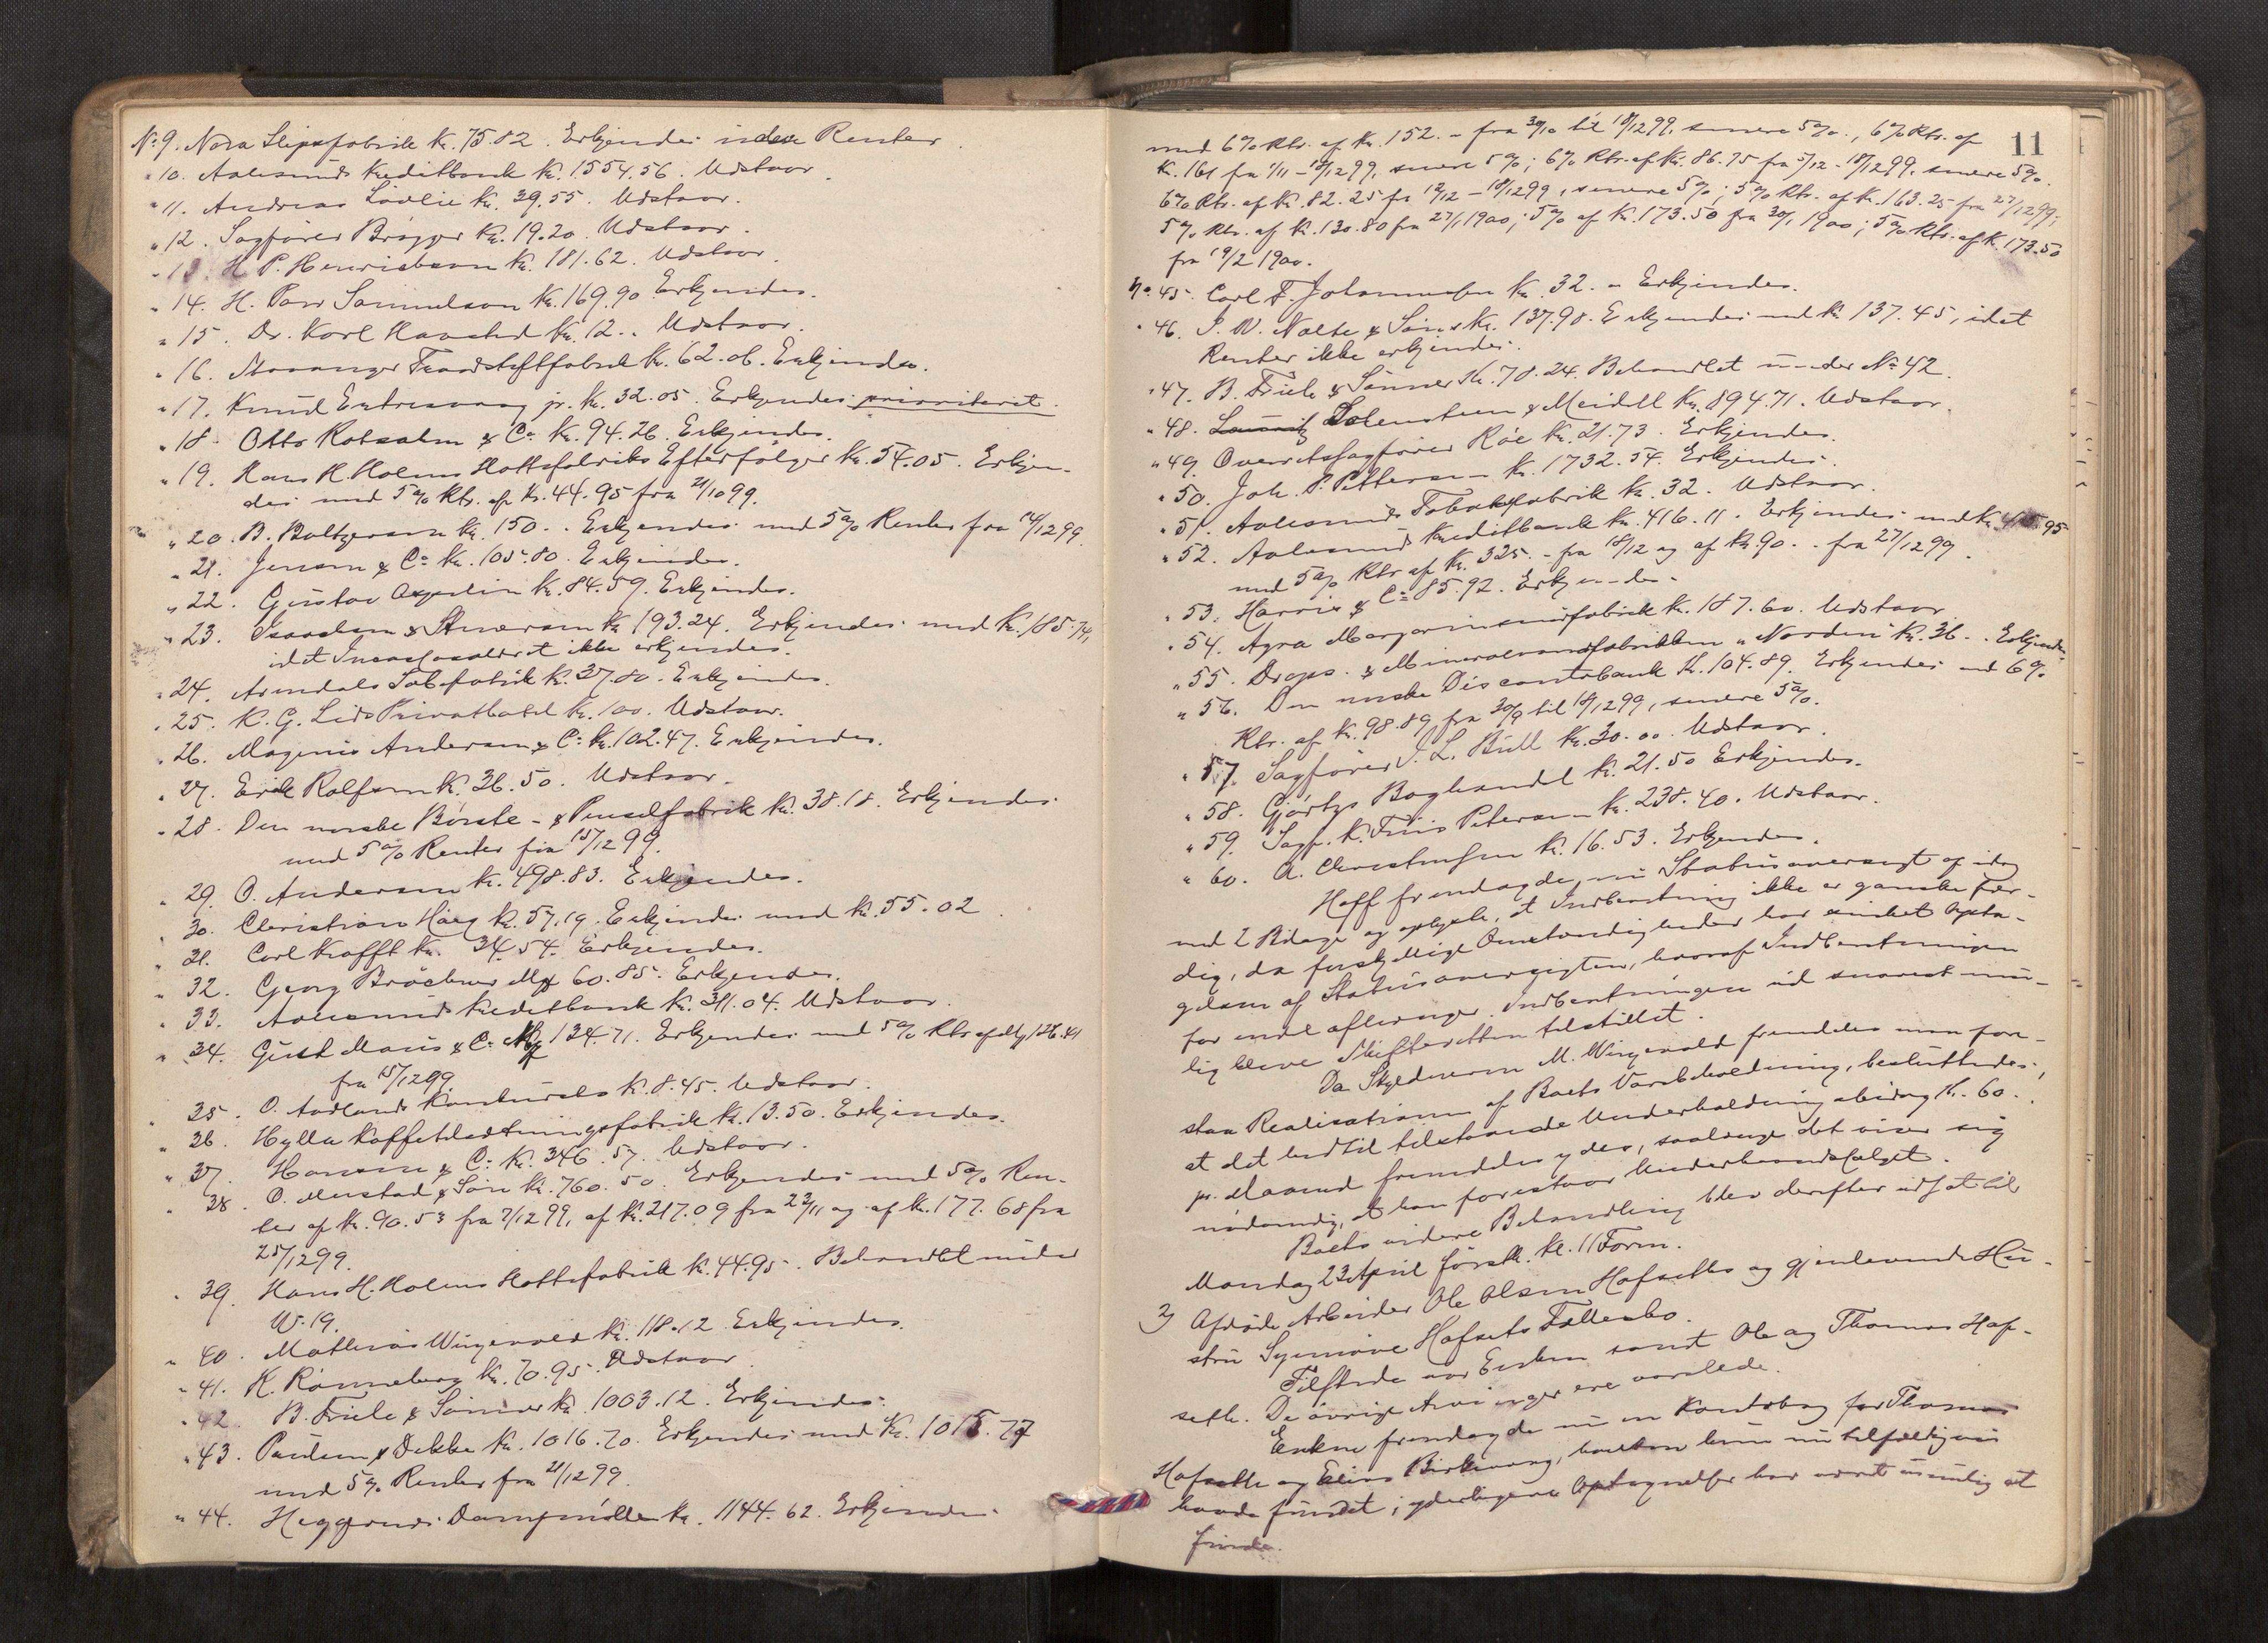 No 9. Nora Slipsfabrik Kr. 75.82. Erkjendes uden Renter.
" 10. Aalesunds Kreditbank Kr. 1554.56. Udstaar.
" 11. Andreas Lövlie Kr. 39.55. Udstaar.
" 12. Sagförer Brøgger Kr. 19.20. Udstaar.
" 13. H. P. Henrichsen Kr. 181.62. Udstaar.
" 14. H. Paw Samuelson Kr. 169.90 Erkjendes.
" 15. Dr. Karl Havsted Kr. 12.. Udstaar.
" 16. Stavanger Traadstiftfabrik Kr. 62.06. Erkjendes.
" 17. Knud Extresvaag jr. Kr. 32.05. Erkjendes prioriteret.
" 18. Otto Robsahm & Co Kr. 94.26. Erkjendes.
" 19. Hans H. Holms Hattefabriks Efterfölger Kr. 54.05. Erkjen-
des med 5% Rtr. af Kr. 44.95 fra 21/10 99.
" 20. B. Baltzersen Kr. 150.. Erkjendes med 5% Renter fra 14/12 99.
" 21. Jensen & Co Kr. 105.80. Erkjendes.
" 22. Gustav Asperlin Kr. 84.59. Erkjendes.
" 23. Isaachsen & Kr. 193.24. Erkjendes med Kr. 185.74,
idet Incassosalæret ikke erkjendes.
" 24. Arendals Kr. 37.80. Erkjendes.
" 25. K. G. Lids Privathotel Kr. 100. Udstaar.
" 26. Magnus Andersen & Co Kr. 102.47. Erkjendes.
" 27. Erik Rolfsen Kr. 36.50. Udstaar.
" 28. Den norske Börste- & Penselfabrik Kr. 38.18. Erkjendes
med 5% Renter fra 15/12 99.
" 29. O. Andersen Kr. 498.83. Erkjendes.
" 30. Christian Haeg Kr. 57.19. Erkjendes med Kr. 55.02.
" 31. Carl Krafft Kr. 34.54. Erkjendes.
" 32. Georg Bröchner 60.85. Erkjendes.
" 33. Aalesunds Kreditbank Kr. 311.04. Udstaar.
" 34. Gust Maus & Co 134.71. Erkjendes med 5% Rtr af 126.41
fra 15/12 99.
" 35. O. Aadlands Konkursbo Kr. 8.45. Udstaar.
" 36. Hylla Kaffetilsætningsfabrik Kr. 13.50. Erkjendes.
" 37. Hansen & Co Kr. 346.57. Udstaar.
" 38. O. Mustad & Sön Kr. 760.50. Erkjendes med 5% Ren-
ter af Kr. 90.53 fra 7/12 99, af Kr. 217.09 fra 23/11 og af Kr. 177.68 fra
25/12 99.
" 39. Hans H. Holms Hattefabrik Kr. 44.95. Behandlet under
No 19.
" 40. Mathias Wingevold Kr. 118.12 Erkjendes.
" 41. K. Rönneberg Kr. 70.95. Udstaar.
" 42. B. Friele & Sönner Kr. 1003.12. Erkjendes.
" 43. Paulsen & Dekke Kr. 1016.70. Erkjendes med Kr. 1015.77
med 5% Renter fra 21/12 99.
" 44. Heggernes Dampmölle Kr. 1144.62. Erkjendes
11
med 6% Rtr. af Kr. 152.- fra 30/10 til 18/12 99, senere 5%., 6% Rtr. af
Kr. 161 fra 1/11 - 18/12 99, senere 5%; 6% Rtr. af Kr. 86.75 fra 5/12 - 18/12 99, senere 5%.
6% Rtr. af Kr. 82.25 fra 12/12 - 18/12 99, senere 5%; 5% Rtr. af Kr. 163.25 fra 27/12 99;
5% Rtr. af Kr. 130.80 fra 27/1 1900; 5% af Kr. 173.50 fra 30/1 1900; 5% Rtr. af Kr. 173.50
fra 19/2 1900.
No 45. Carl F. Johannesen Kr. 32.- Erkjendes.
" 46. J. W. Nolte & Söns Kr. 137.98. Erkjendes med Kr. 137.45, idet
Renter ikke erkjendes.
" 47. B. Friele & Sönner Kr. 78.24. Behandlet under No 42.
" 48. & Meidell Kr. 894.71. Udstaar.
" 49. Overretssagförer Röe Kr. 21.73. Erkjendes.
" 50. Joh. P. Pettersen Kr. 1732.54. Erkjendes.
" 51. Aalesunds Tobaksfabrik Kr. 32. Udstaar.
" 52. Aalesunds Kreditbank Kr. 416.11. Erkjendes med Kr. 415.95
med 5% Rtr af Kr. 325.- fra 18/12 og af Kr. 90.. fra 27/12 99.
" 53. Harris & Co 85.92. Erkjendes.
" 54. Agra Margarinsmörfabrik Kr. 187.60. Udstaar
" 55. Drops. & Mineralvandfabrikken "Norden" Kr. 36.. Erkjendes.
" 56. Den norske Discontobank Kr. 104.89. Erkjendes med 6%
Rtr. af Kr. 98.89 fra 30/9 til 18/12 99, senere 5%.
" 57. Sagförer J. L. Bull Kr. 30.00. Udstaar.
" 58. Gjörtzs Boghandel Kr. 21.50 Erkjendes.
" 59. Sagf. K. Friis Petersen Kr. 238.40. Udstaar.
" 60. A. Christensen Kr. 16.53. Erkjendes.
Hoff fremlagde nu Statusoversigt af idag
med 2 Bilage og oplyste, at Indberetning ikke er ganske fær-
dig, da forskjellige Omstændigheder har sinket Opta-
gelsen af Statusoversigten, hvoraf Indberetningen
for endel afhænger. Indberetningen vil snarest mu-
lig blive Skifteretten tilstillet.
Da Skyldneren M. Wingevold fremdeles maa fore-
staa Realisationen af Boets Varebeholdning, besluttedes,
at det hidtil tilstaaede Underholdningsbidrag Kr. 60..
pr. Maaned fremdeles ydes, saalænge det viser sig
nödvendig, at han forestaar Underhaandssalget.
Boets videre Behandling blev derefter udsat til
Mandag 23 April förstk. Kl. 11 Form.
2) Afdöde Arbeider Ole Olsen Hafsettes og gjenlevende Hu-
stru Synnöve Hafsets Fællesbo.
Tilstede var Enken samt Ole og Thomas Haf-
seth. De övrige Arvinger ere varslede.
Enken fremlagde nu en Kontrabog for Thomas
Hafseth og Elias Birkevaag, hvilken hun nu tilfældigvis
havde fundet; yderligere Optegnelser har været umulig at
finde.